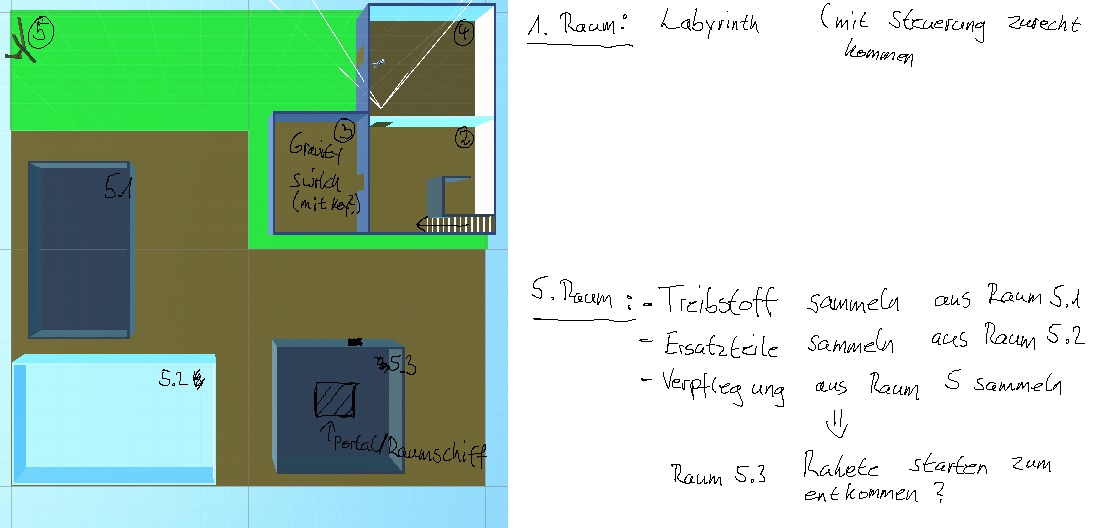 5
4
3
2
Gravity
switch
(mit Kopf?)
5.1
5.2
5.3
Portal/Raumschiff
1. Raum: Labyrinth (mit Steuerung zurecht
kommen
5. Raum: - Treibstoff sammeln aus Raum 5.1
- Ersatzteile sammeln aus Raum 5.2
- Verpflegung aus Raum 5 sammeln
Raum 5.3 Rakete starten zum
entkommen?